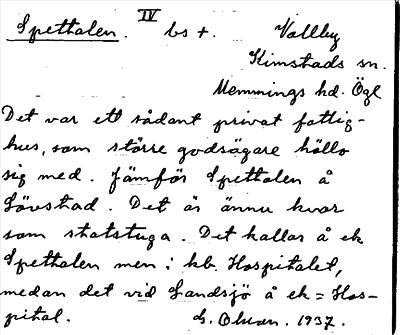 IV
Spettalen. bs +. Vallby
Kimstads sn.
Memmings hd. Ögl
Det var ett sådant privat fattig-
hus, som större godsägare höllo
sig med. Jämför Spettalen å
Lövstad. Det är ännu kvar
som statstuga. Det kallas å ek
Spetthalen men i kb. Hospitalet,
medan det vid Landsjö å ek = Hos-
pital. G. Olson. 1937.